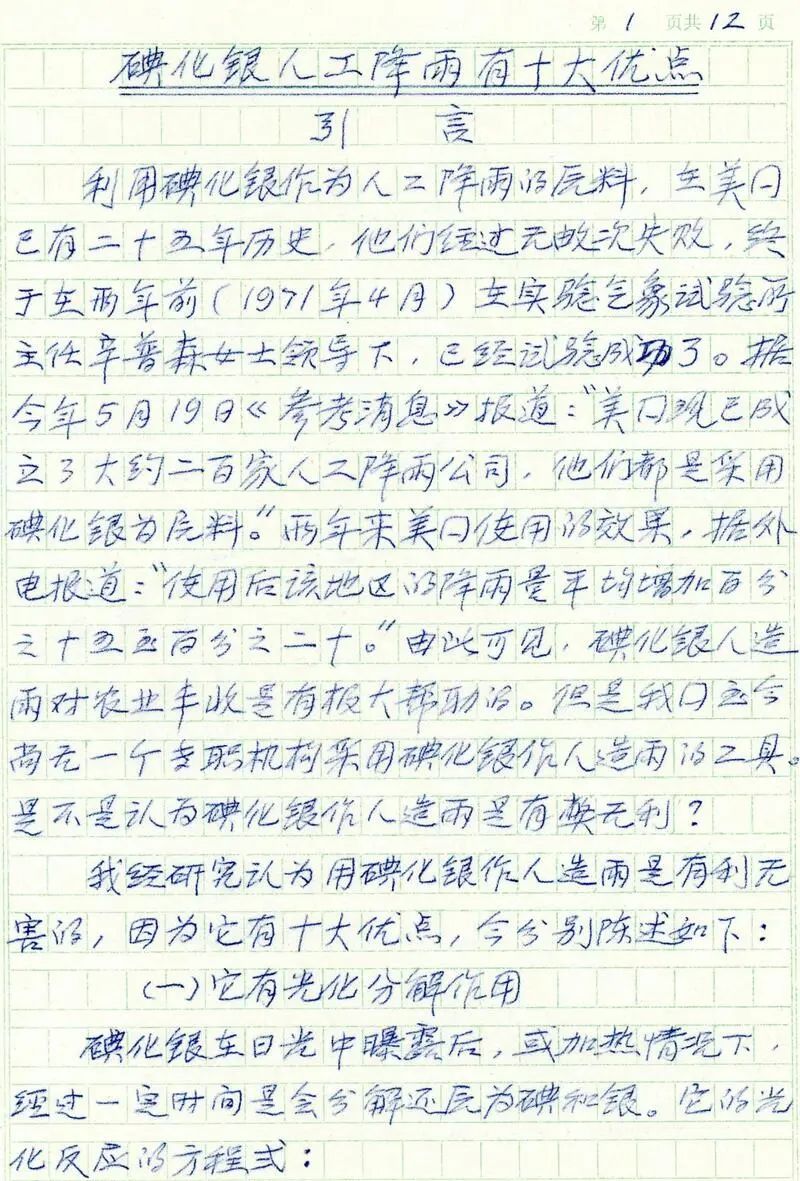 第 1 页共 12 页
碘化银人工降雨有十大优点
引 言
利用碘化银作为人工降雨的原料，在美囗
已有二十五年历史，他们经过无数次失败，终
于在两年前(1971年4月)在实验气象试验所
主任辛普森女士领导下，已经试验成功了。据
今年5月19日《参考消息》报道："美囗现已成
立了大约二百家人工降雨公司，他们都是采用
碘化银为原料。"两年来美囗使用的效果，据外
电报道："使用后该地区的降雨量平均增加百分
之十五至百分之二十。"由此可见，碘化银人造
雨对农业丰收是有极大帮助的。但是我囗至今
尚无一个专职机构采用碘化银作人造雨的工具。
是不是认为碘化银作人造雨是有弊无利？
我经研究认为用碘化银作人造雨是有利无
害的，因为它有十大优点，今分别陈述如下：
(一)它有光化分解作用
碘化银在日光中曝露后，或加热情况下，
经过一定时间是会分解还原为碘和银。它的光
化反应的方程式：